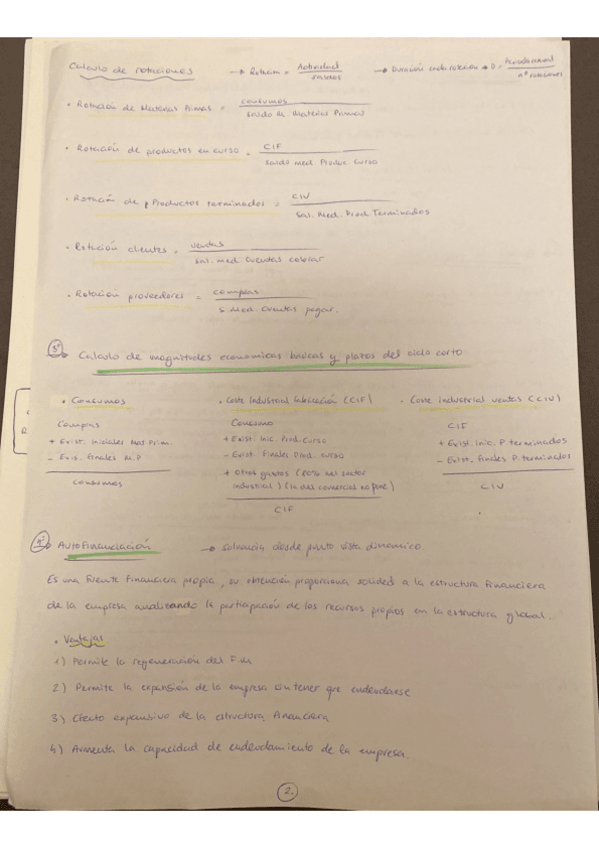 Calculo de rotaciones → Rotación = Actividad / Saldos → Duración cada rotación → D = / nº rotaciones
• Rotación de Materias Primas = consumos / Saldo M. Materias Primas
• Rotación de productos en curso = CIF / Saldo med. Produc. Curso
• Rotación de p Productos terminados = CIV / Sal. Med. Prod. Terminados
• Rotación clientes = ventas / Sal. med. Cuentas cobrar
• Rotación proveedores = compras / S. Med. Cuentas pagar.
3º Calculo de magnitudes economicas básicas y plazos del ciclo corto
• Consumos
Compras
+ Exist. Iniciales Mat. Prim.
- Exis. finales M.P
consumos
• Coste Industrial fabricación (CIF)
Consumo
+ Exist. Inic. Prod. Curso
- Exist. Finales Prod. curso
+ Otros gastos (del sector
industrial) (la del comercial no pone)
CIF
• Coste industrial ventas (CIV)
CIF
+ Exist. Inic. P terminados
- Exist. Finales P. terminados
CIV
4º Autofinanciación → solvencia desde punto vista dinamico
Es una fuente financiera propia, su obtención proporciona solidez a la estructura financiera
de la empresa analizando la participación de los recursos propios en la estructura global.
• Ventajas
1) Permite la regeneración del F.M
2) Permite la expansión de la empresa sin tener que endeudarse
3) Efecto expansivo de la estructura financiera
4) Aumenta la capacidad de endeudamiento de la empresa.
2.